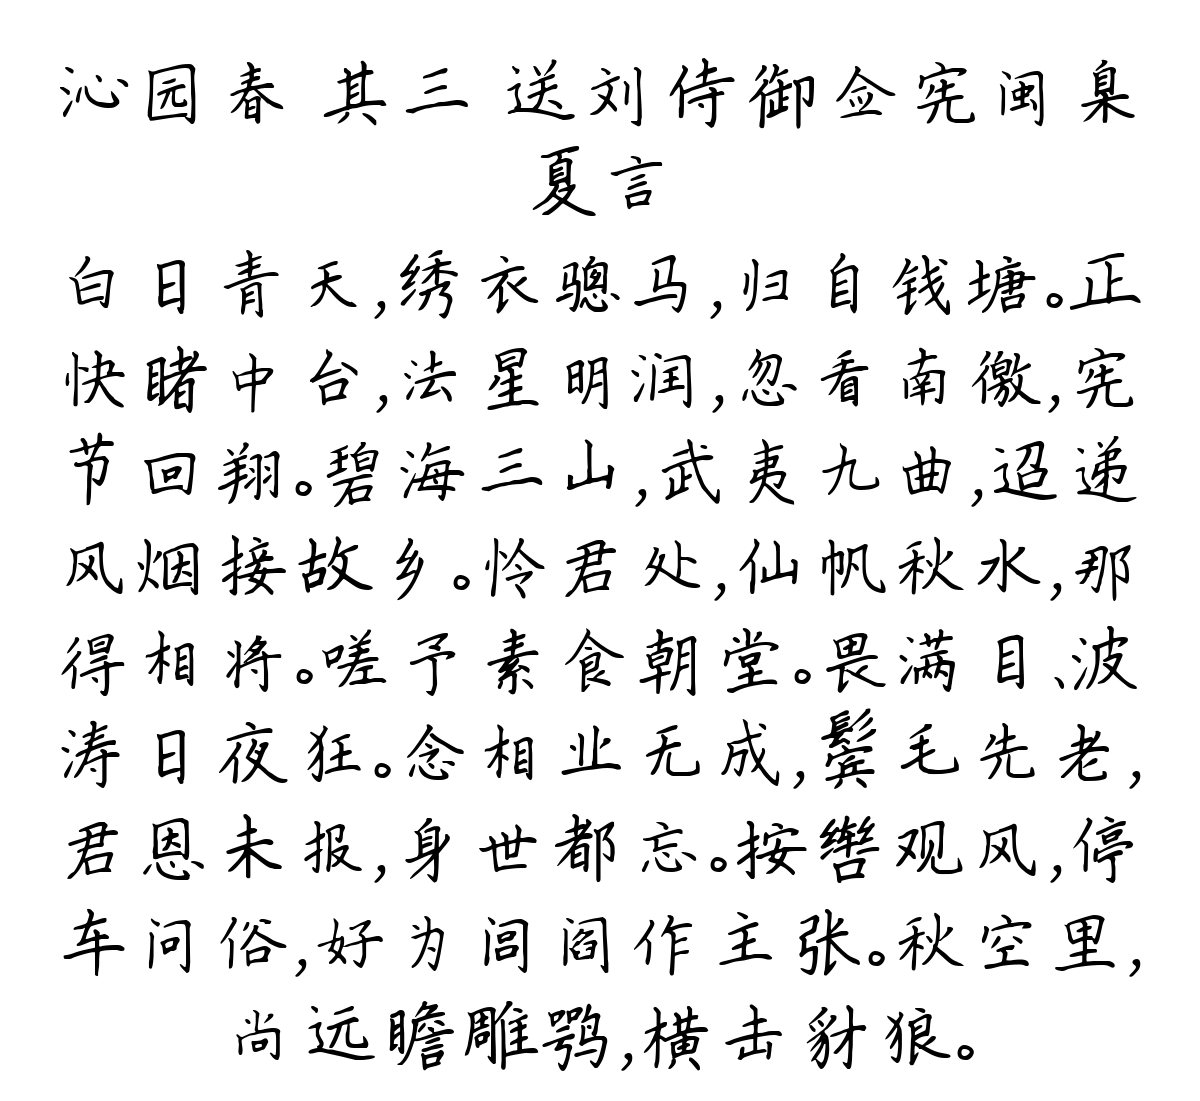 沁园春 其三 送刘侍御佥宪闽臬
夏言
白日青天,绣衣骢马,归自钱塘。正
快睹中台,法星明润,忽看南徼,宪
节回翔。碧海三山,武夷九曲,迢递
风烟接故乡。怜君处,仙帆秋水,那
得相将。嗟予素食朝堂。畏满目、波
涛日夜狂。念相业无成,鬓毛先老,
君恩未报,身世都忘。按辔观风,停
车问俗,好为闾阎作主张。秋空里,
尚远瞻雕鹗,横击豺狼。